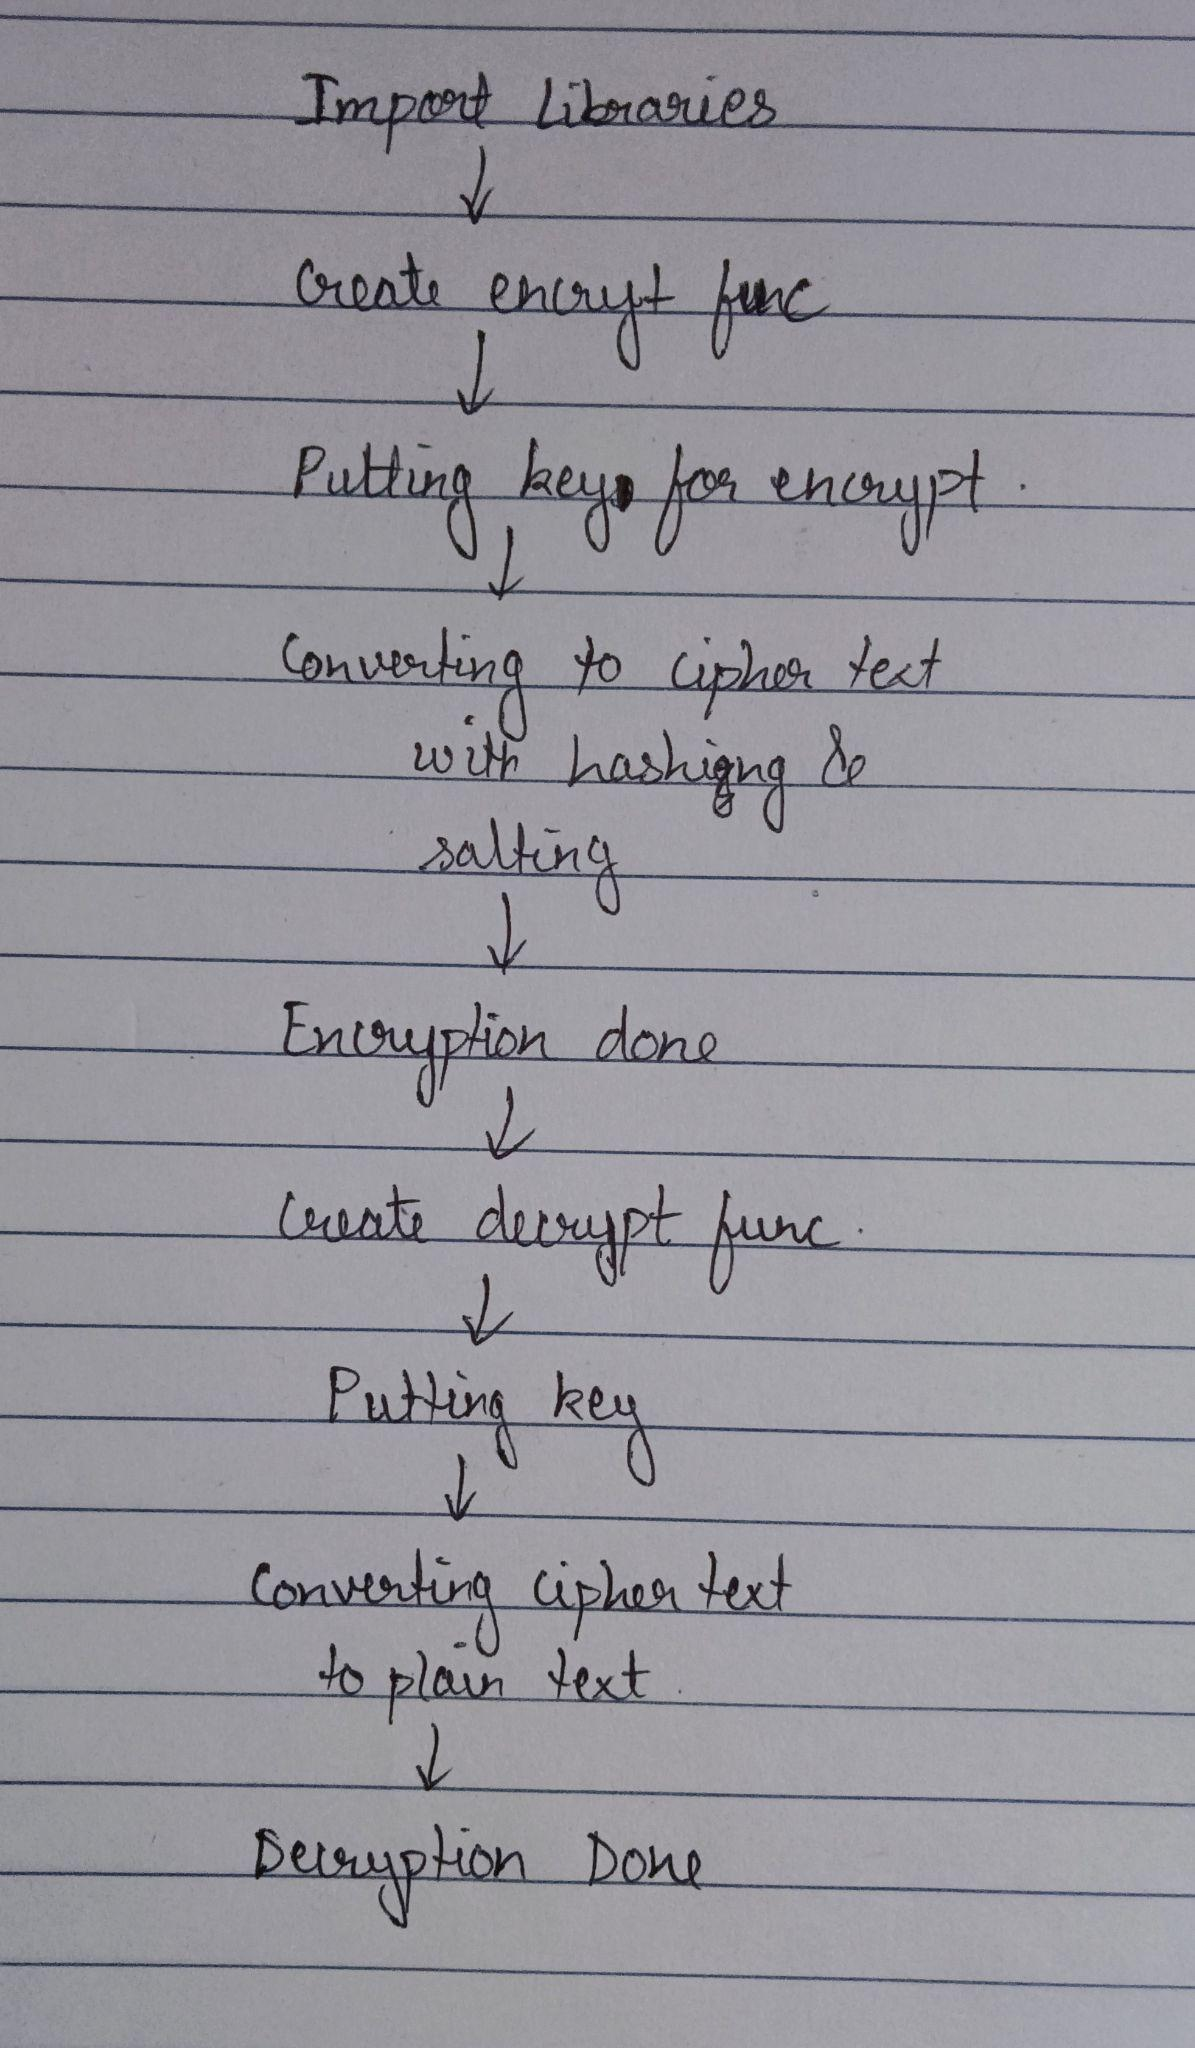 Import Libraries
↓
Create encryt func
↓
Putting key for encrypt.
↓
Converting to cipher text
with hashigng &
salting
↓
Encryption done
↓
Create decrypt func.
↓
Putting key
↓
Converting cipher text
to plain text.
↓
Decryption Done